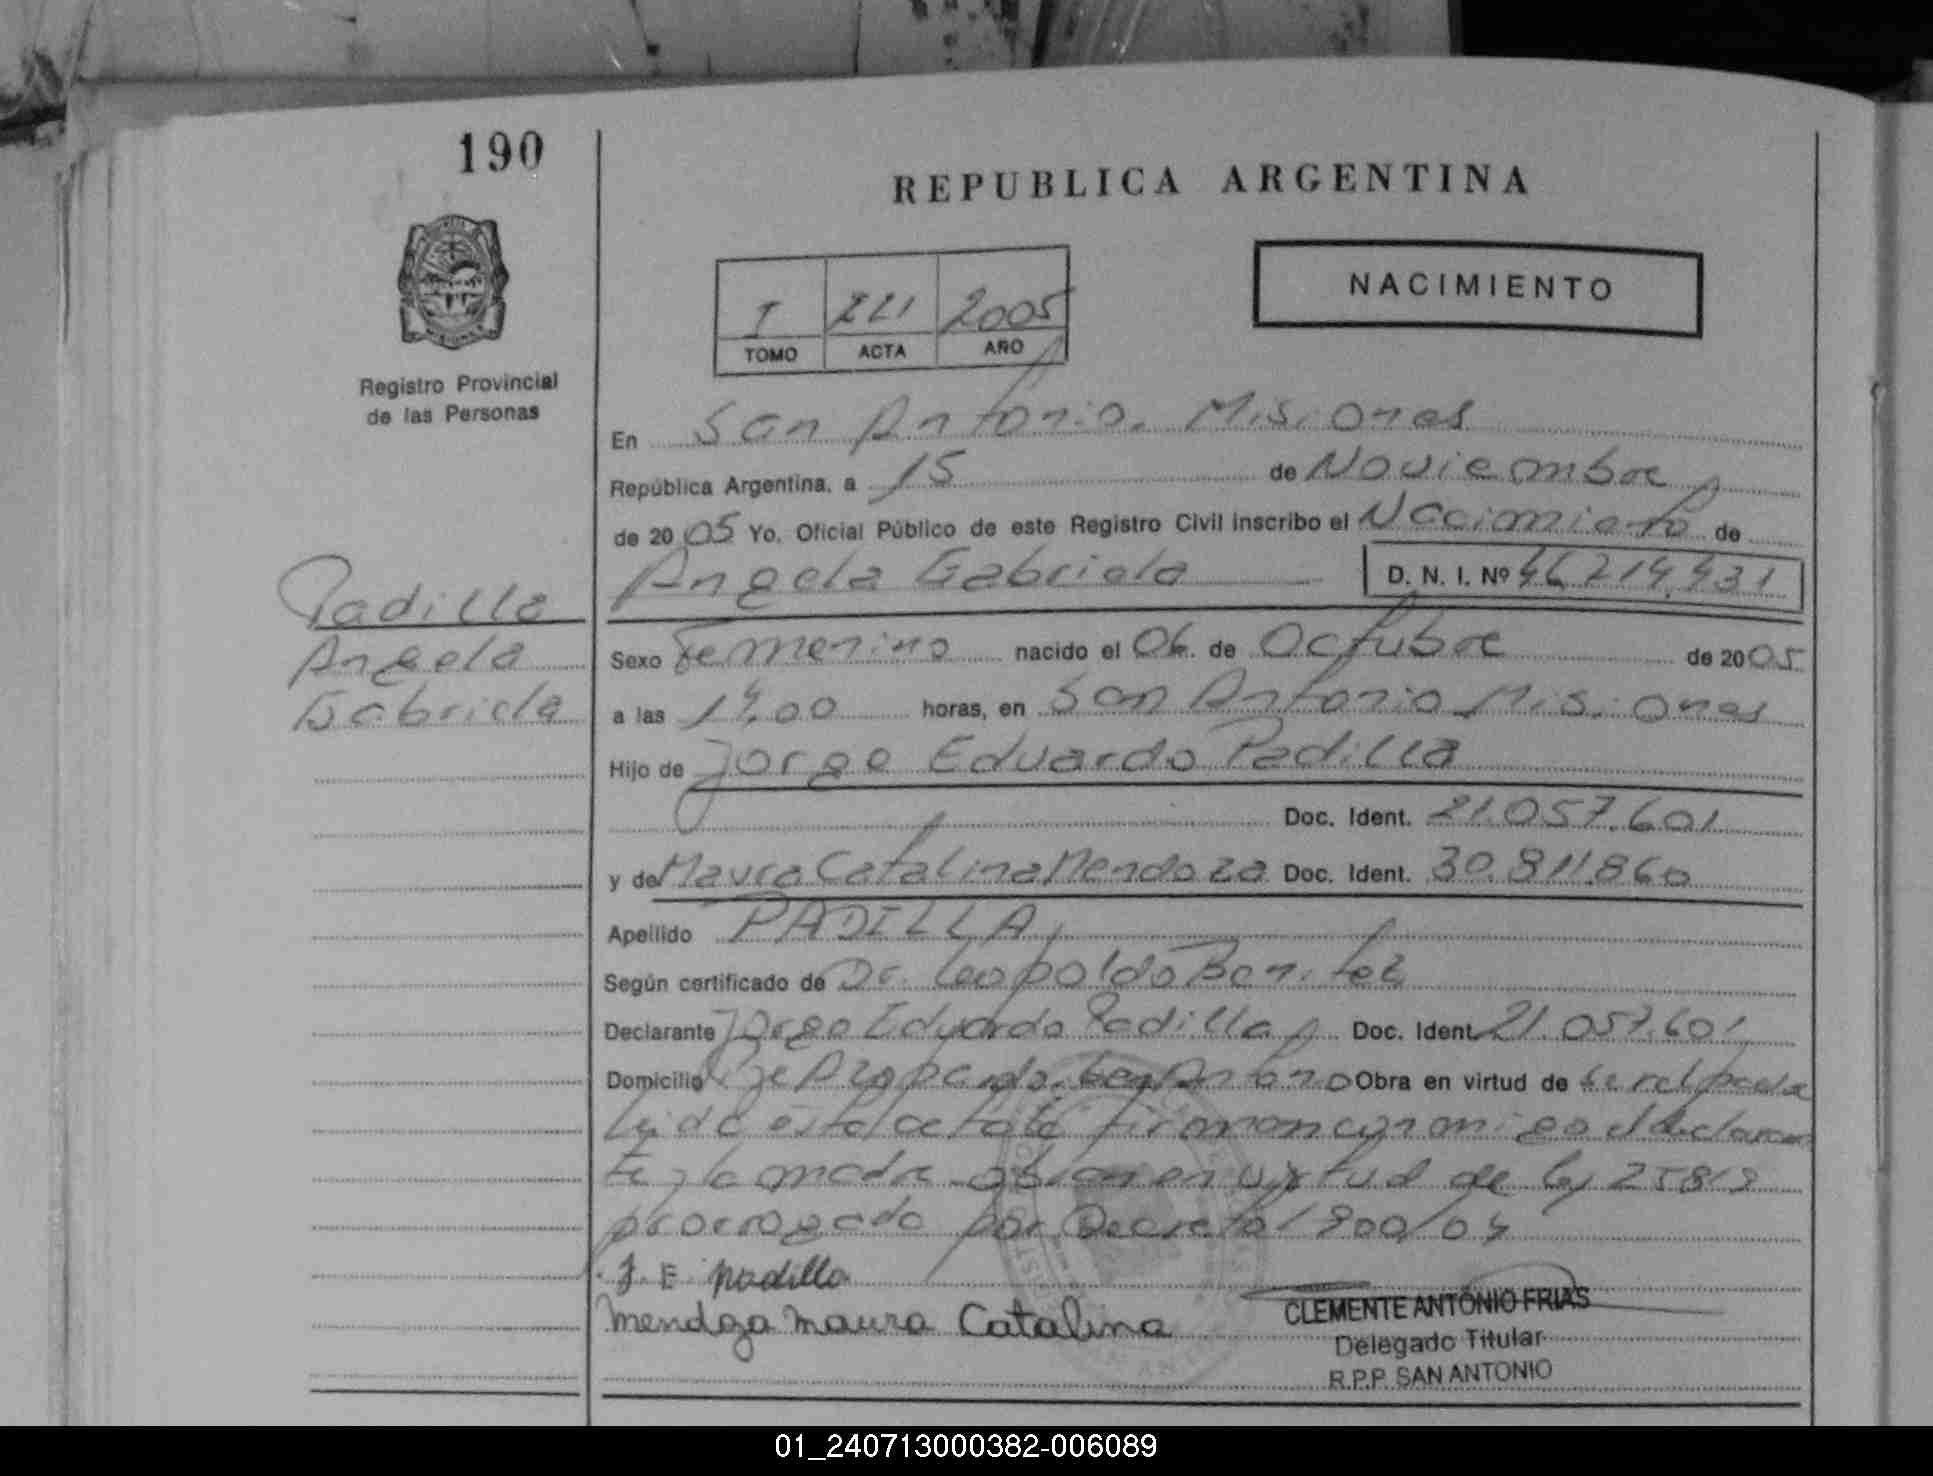 190
REPUBLICA ARGENTINA
NACIMIENTO
I 2005
TOMO ACTA AÑO
Registro Provincial
de las Personas
En San Antonio. Misiones
República Argentina, a 15 de Noviembre
de 2005 Yo, Oficial Público de este Registro Civil inscribo el Nacimiento de
Angela Gabriela D. N. I. Nº 46.214.431
Padilla
Angela
Gabriela
Sexo Femenino nacido el 06 de Octubre de 2005
a las 14,00 horas, en San Antonio Misiones
Hijo de Jorge Eduardo Padilla
Doc. Ident. 21.057.601
y de Maura Catalina Mendoza Doc. Ident. 30.811.860
Apellido PADILLA
Según certificado de Dr. Leopoldo Benitez
Declarante Jorge Eduardo Padilla Doc. Ident. 21.057.601
Domicilio San Antonio Obra en virtud de
Leida esta acta firman conmigo el declaran
te y la madre obran en virtud de ley 25819
prorrogado por Decreto 1800/04
J. E. Padilla
Mendoza Maura Catalina
CLEMENTE ANTONIO FRIAS
Delegado Titular
R.P.P. SAN ANTONIO
01_240713000382-006089